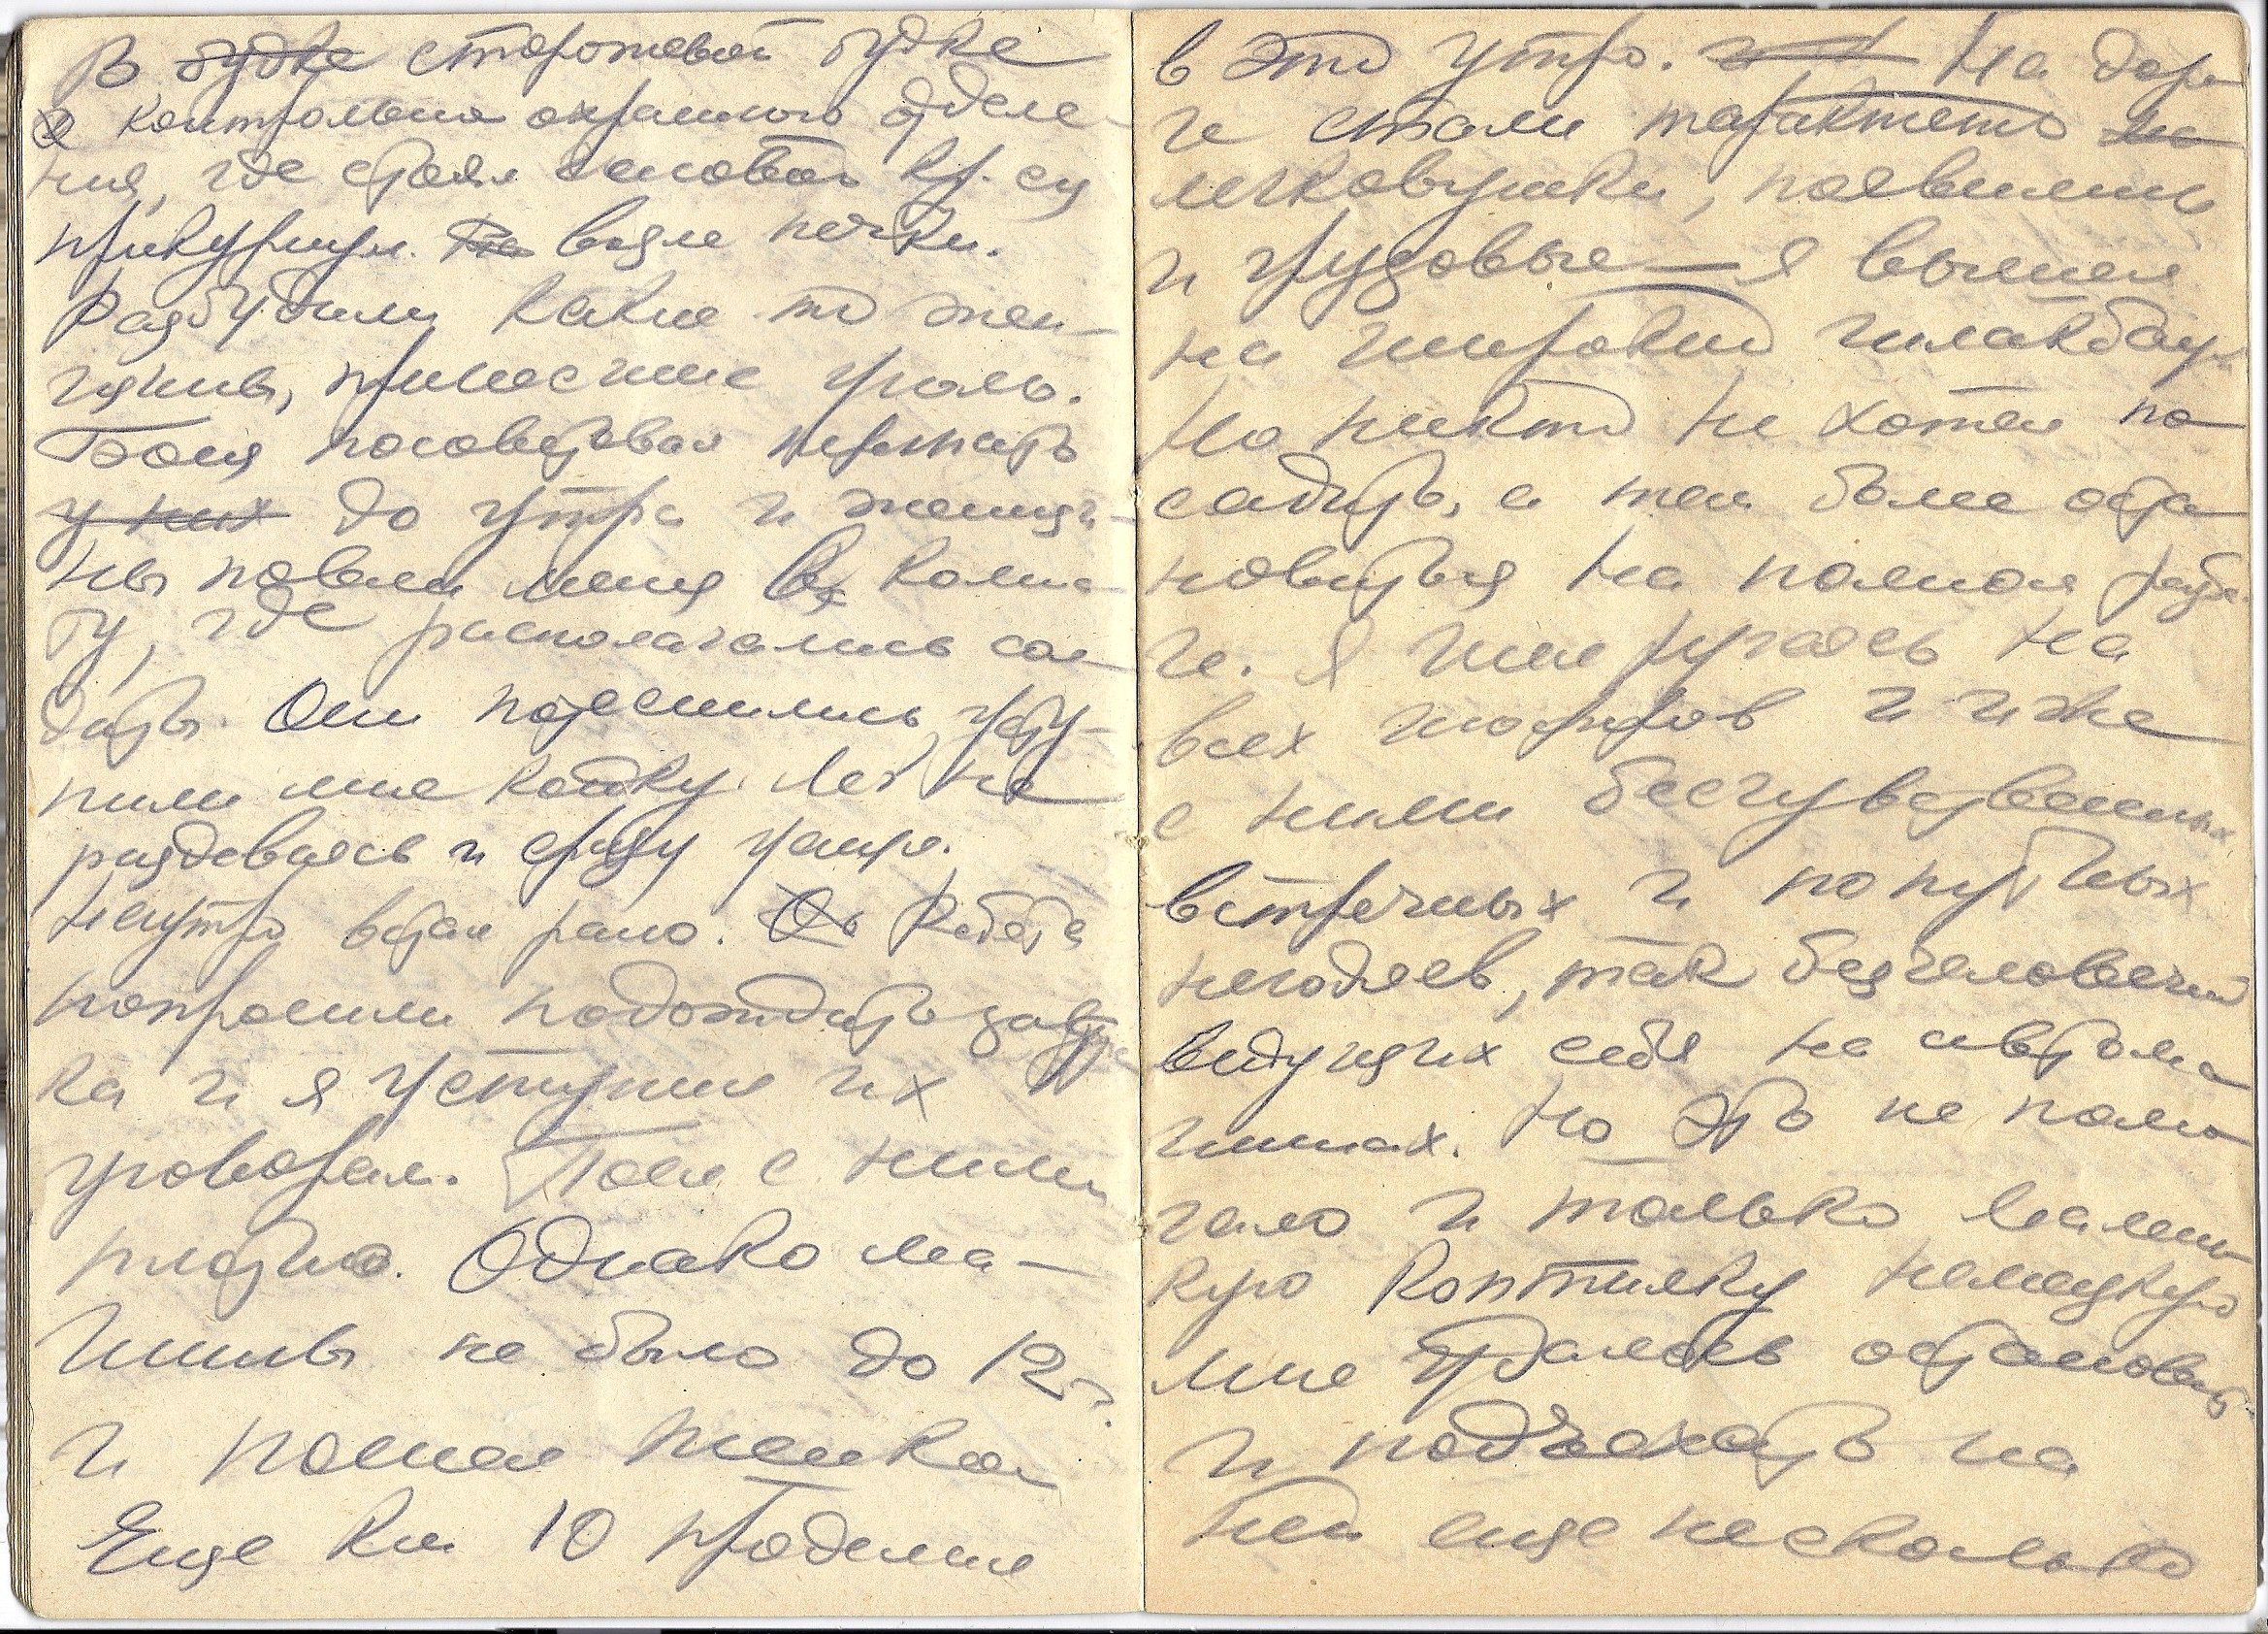 В будке сторожевой будке
а контрольно охранного отделе-
ния, где стоял часовой
прикурнул. На возле печки.
Разбудили какие то жен-
щины, принесшие уголь.
Боец посоветовал переждать
у них до утра и женщи-
ны повели меня в комна-
ту, где располагались сол-
даты. Они потеснились, усту-
пили мне койку. Лег не
раздеваясь и сразу уснул.
Наутро встал рано. Ребята
попросили подождать завтра-
ка и я уступил их
уговорам. Поел с ними
плотно. Однако ма-
шины не было до 12 ч.
и пошел пешком
Еще км 10 проделал
в это утро. На доро-
ге стали тарахтеть
легковушки, появились
и грузовые — я вышел
на широкий шлакбаум
Но никто не хотел по-
садить, а тем более оста-
новиться на полном
ге. Я шел ругаясь на
всех шоферов и иже
с ними бесчувственных
встречных и попутных
негодяев, так безчеловечно
ведущих себя на автома-
шинах. Но это не помо-
гало и только малень-
кую коптилку немецкую
мне удалось остановить
и подъехать на
ней еще несколько